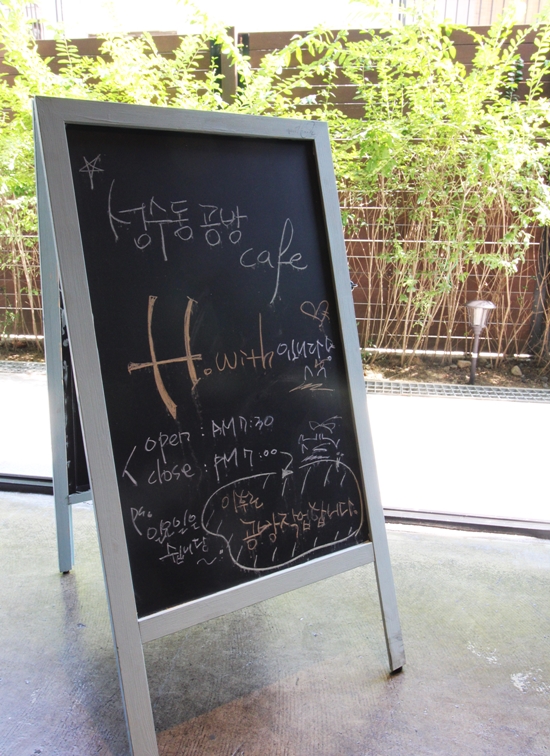 성수동 공방
cafe
H.with 입니다
open : AM 7:30
close : PM 7:00
P.S. 일요일은
쉽니다~
이후는
공방작업합니다.